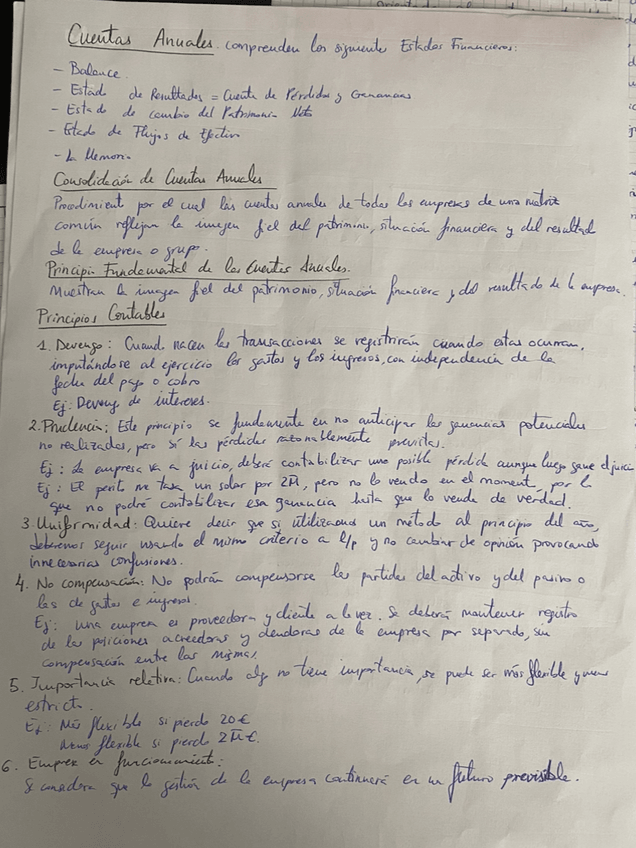 Cuentas Anuales comprenden los siguientes Estados Financieros:
- Balance.
- Estado de Resultados = Cuenta de Pérdidas y Ganancias
- Estado de cambio del Patrimonio Neto
- Estado de Flujos de Efectivo
- La Memoria
Consolidación de Cuentas Anuales
Procedimiento por el cual las cuentas anuales de todas las empresas de una matriz
común reflejan la imagen fiel del patrimonio, situación financiera y del resultado
de la empresa o grupo.
Principio Fundamental de las Cuentas Anuales.
Muestran la imagen fiel del patrimonio, situación financiera y del resultado de la empresa.
Principios Contables
1. Devengo: Cuando nacen las transacciones se registrirán cuando estas ocurran,
imputándose al ejercicio los gastos y los ingresos, con independencia de la
fecha del pago o cobro
Ej: Devengo de intereses.
2. Prudencia: Este principio se fundamenta en no anticipar las ganancias potenciales
no realizadas, pero sí las pérdidas razonablemente previstas.
Ej: La empresa va a juicio, deberá contabilizar una posible pérdida aunque luego gane el juicio
Ej: El perito me tasa un solar por 2M, pero no lo vendo en el momento, por lo
que no podré contabilizar esa ganancia hasta que lo venda de verdad.
3. Uniformidad: Quiere decir que si utilizamos un método al principio del año,
debemos seguir usando el mismo criterio a l/p y no cambiar de opinión provocando
innecesarias confusiones.
4. No compensación: No podrán compensarse las partidas del activo y del pasivo o
las de gastos e ingresos.
Ej: una empresa es proveedora y cliente a la vez. Se deberá mantener registro
de las posiciones acreedoras y deudoras de la empresa por separado, sin
compensación entre las mismas.
5. Importancia relativa: Cuando algo no tiene importancia, se puede ser más flexible y menos
estricto.
Ej: Más flexible si pierdo 20 €
Menos flexible si pierdo 2M €.
6. Empresa en funcionamiento:
Se considera que la gestión de la empresa continuará en un futuro previsible.